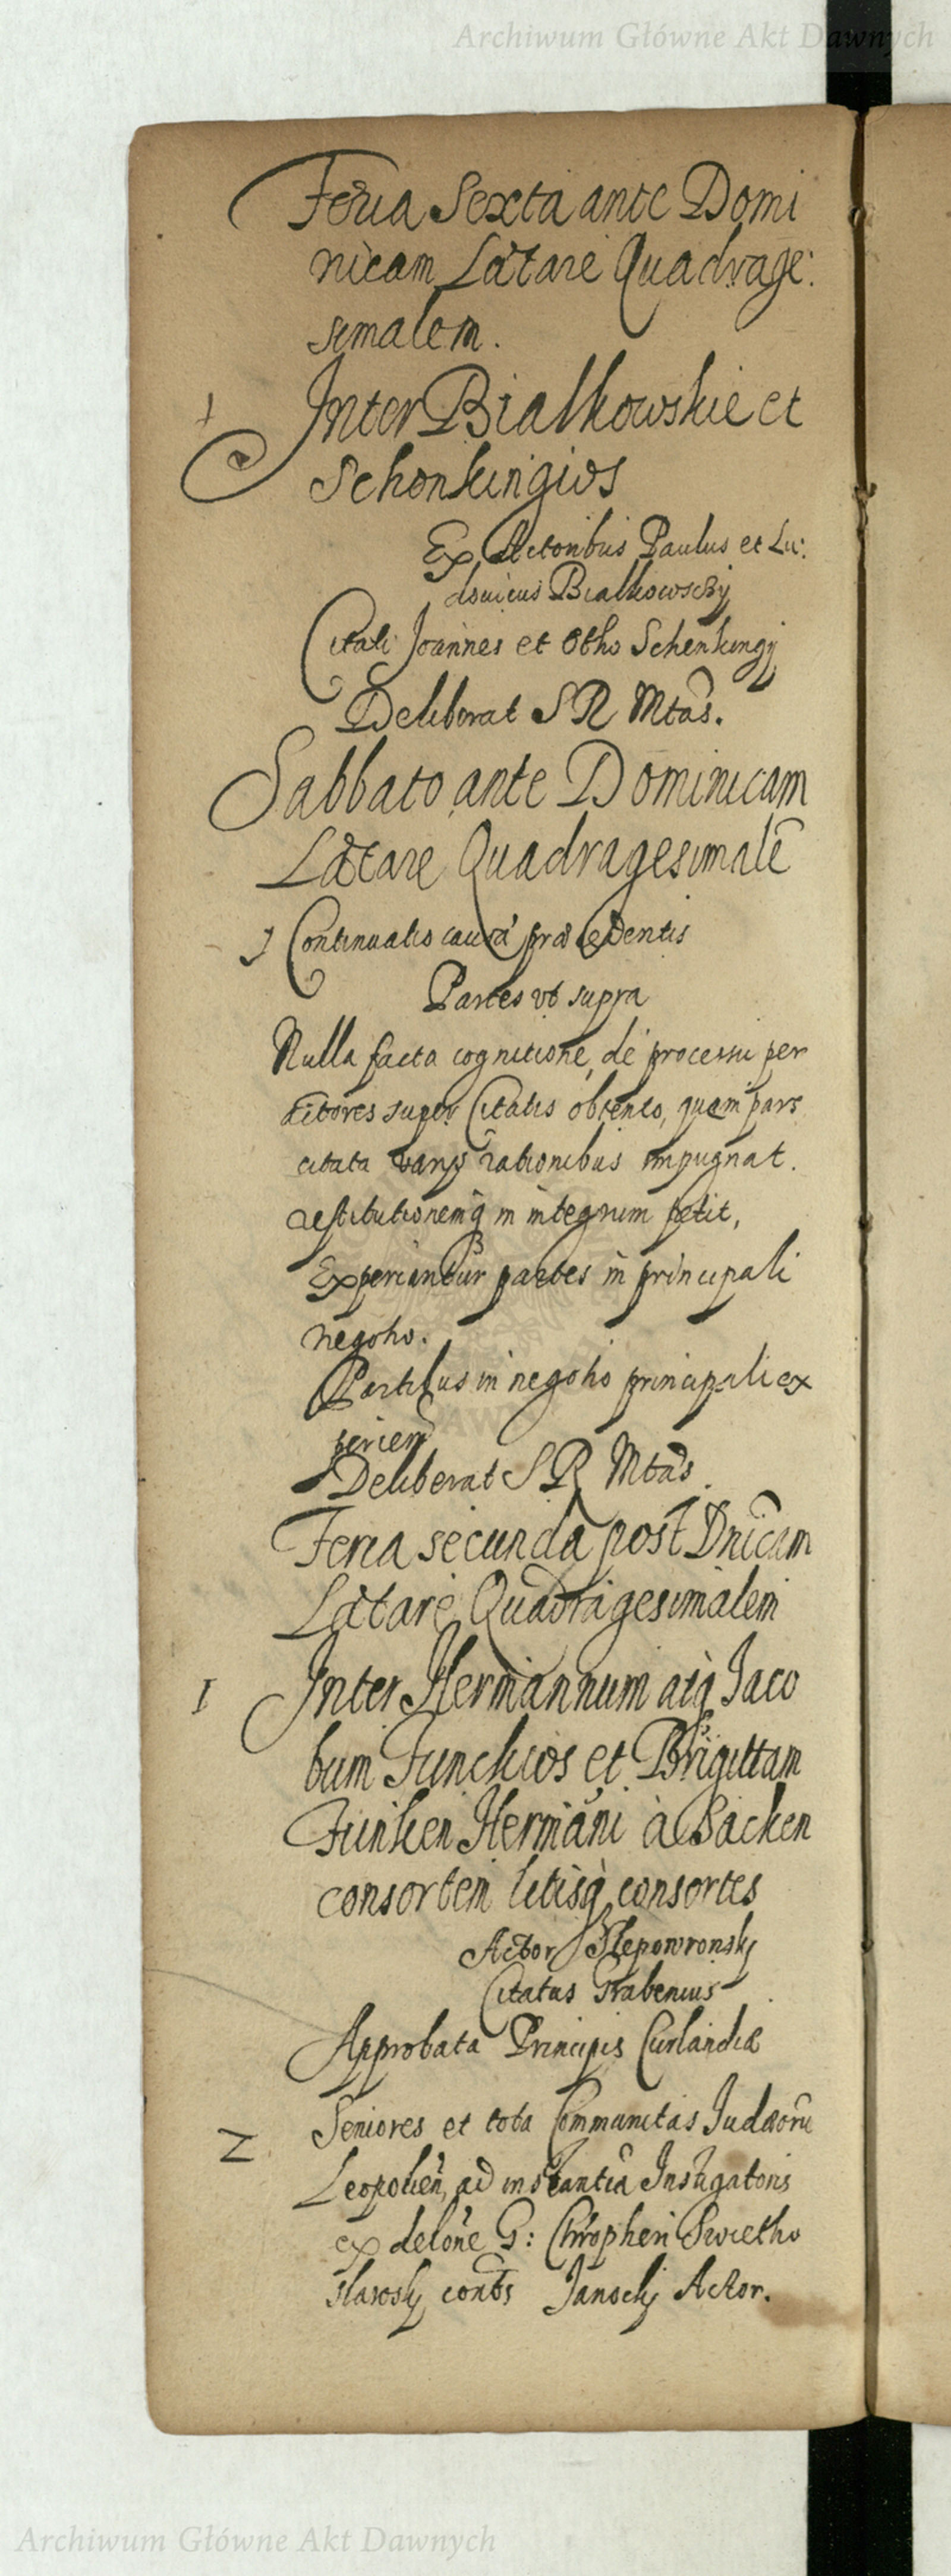 Archiwum Główne Akt Dawnych
Feria Sexta ante Domi
nicam Lætare Quadrage:
simalem.
1 Inter Bialkowskie et
Schonkingios
Ex Actoribus Paulus et Lu:
douicus Bialkowscÿ
Citati Joannes et Otho Schenkingÿ
Deliberat S R Mtas.
Sabbato ante Dominicam
Lætare Quadragesimalē
1 Continuatio causæ præcedentis
Partes vt supra
Nulla facta cognitione, de processu per
actores super Citatis obtento, quem pars
citata varijs rationibus impugnat.
restitutionemq in integrum petit,
Experiantur partes in principali
negotio.
Partibus in negotio principali ex
perien
Deliberat S R Mtas.
Feria secunda post Dnicam
Lætare Quadragesimalem
1 Inter Hermannum atq Jaco
bum Funckios et Brigittam
Funken Hermāni à Backen
consortem litisq consortes
Actor Slepowronskj
Citatus Grabenius
Approbata Principis Curlandiæ
2 Seniores et tota Communitas Judæorū
Leopolien, ad instantiā Instigatoris
ex delōne G: Chropheri Swietho
slawskj contos Janockj Actor.
Archiwum Główne Akt Dawnych